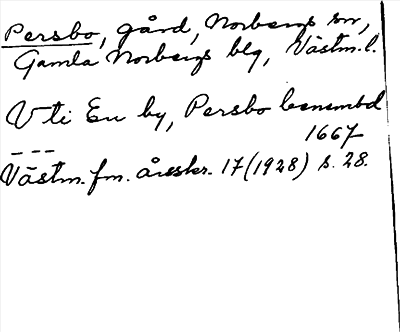 Persbo, gård, Norbergs sn,
Gamla Norbergs blg, Västm. l.
V ti En by, Persbo benembd
1667
---
Västm. fm. årsskr. 17 (1928) s. 28.